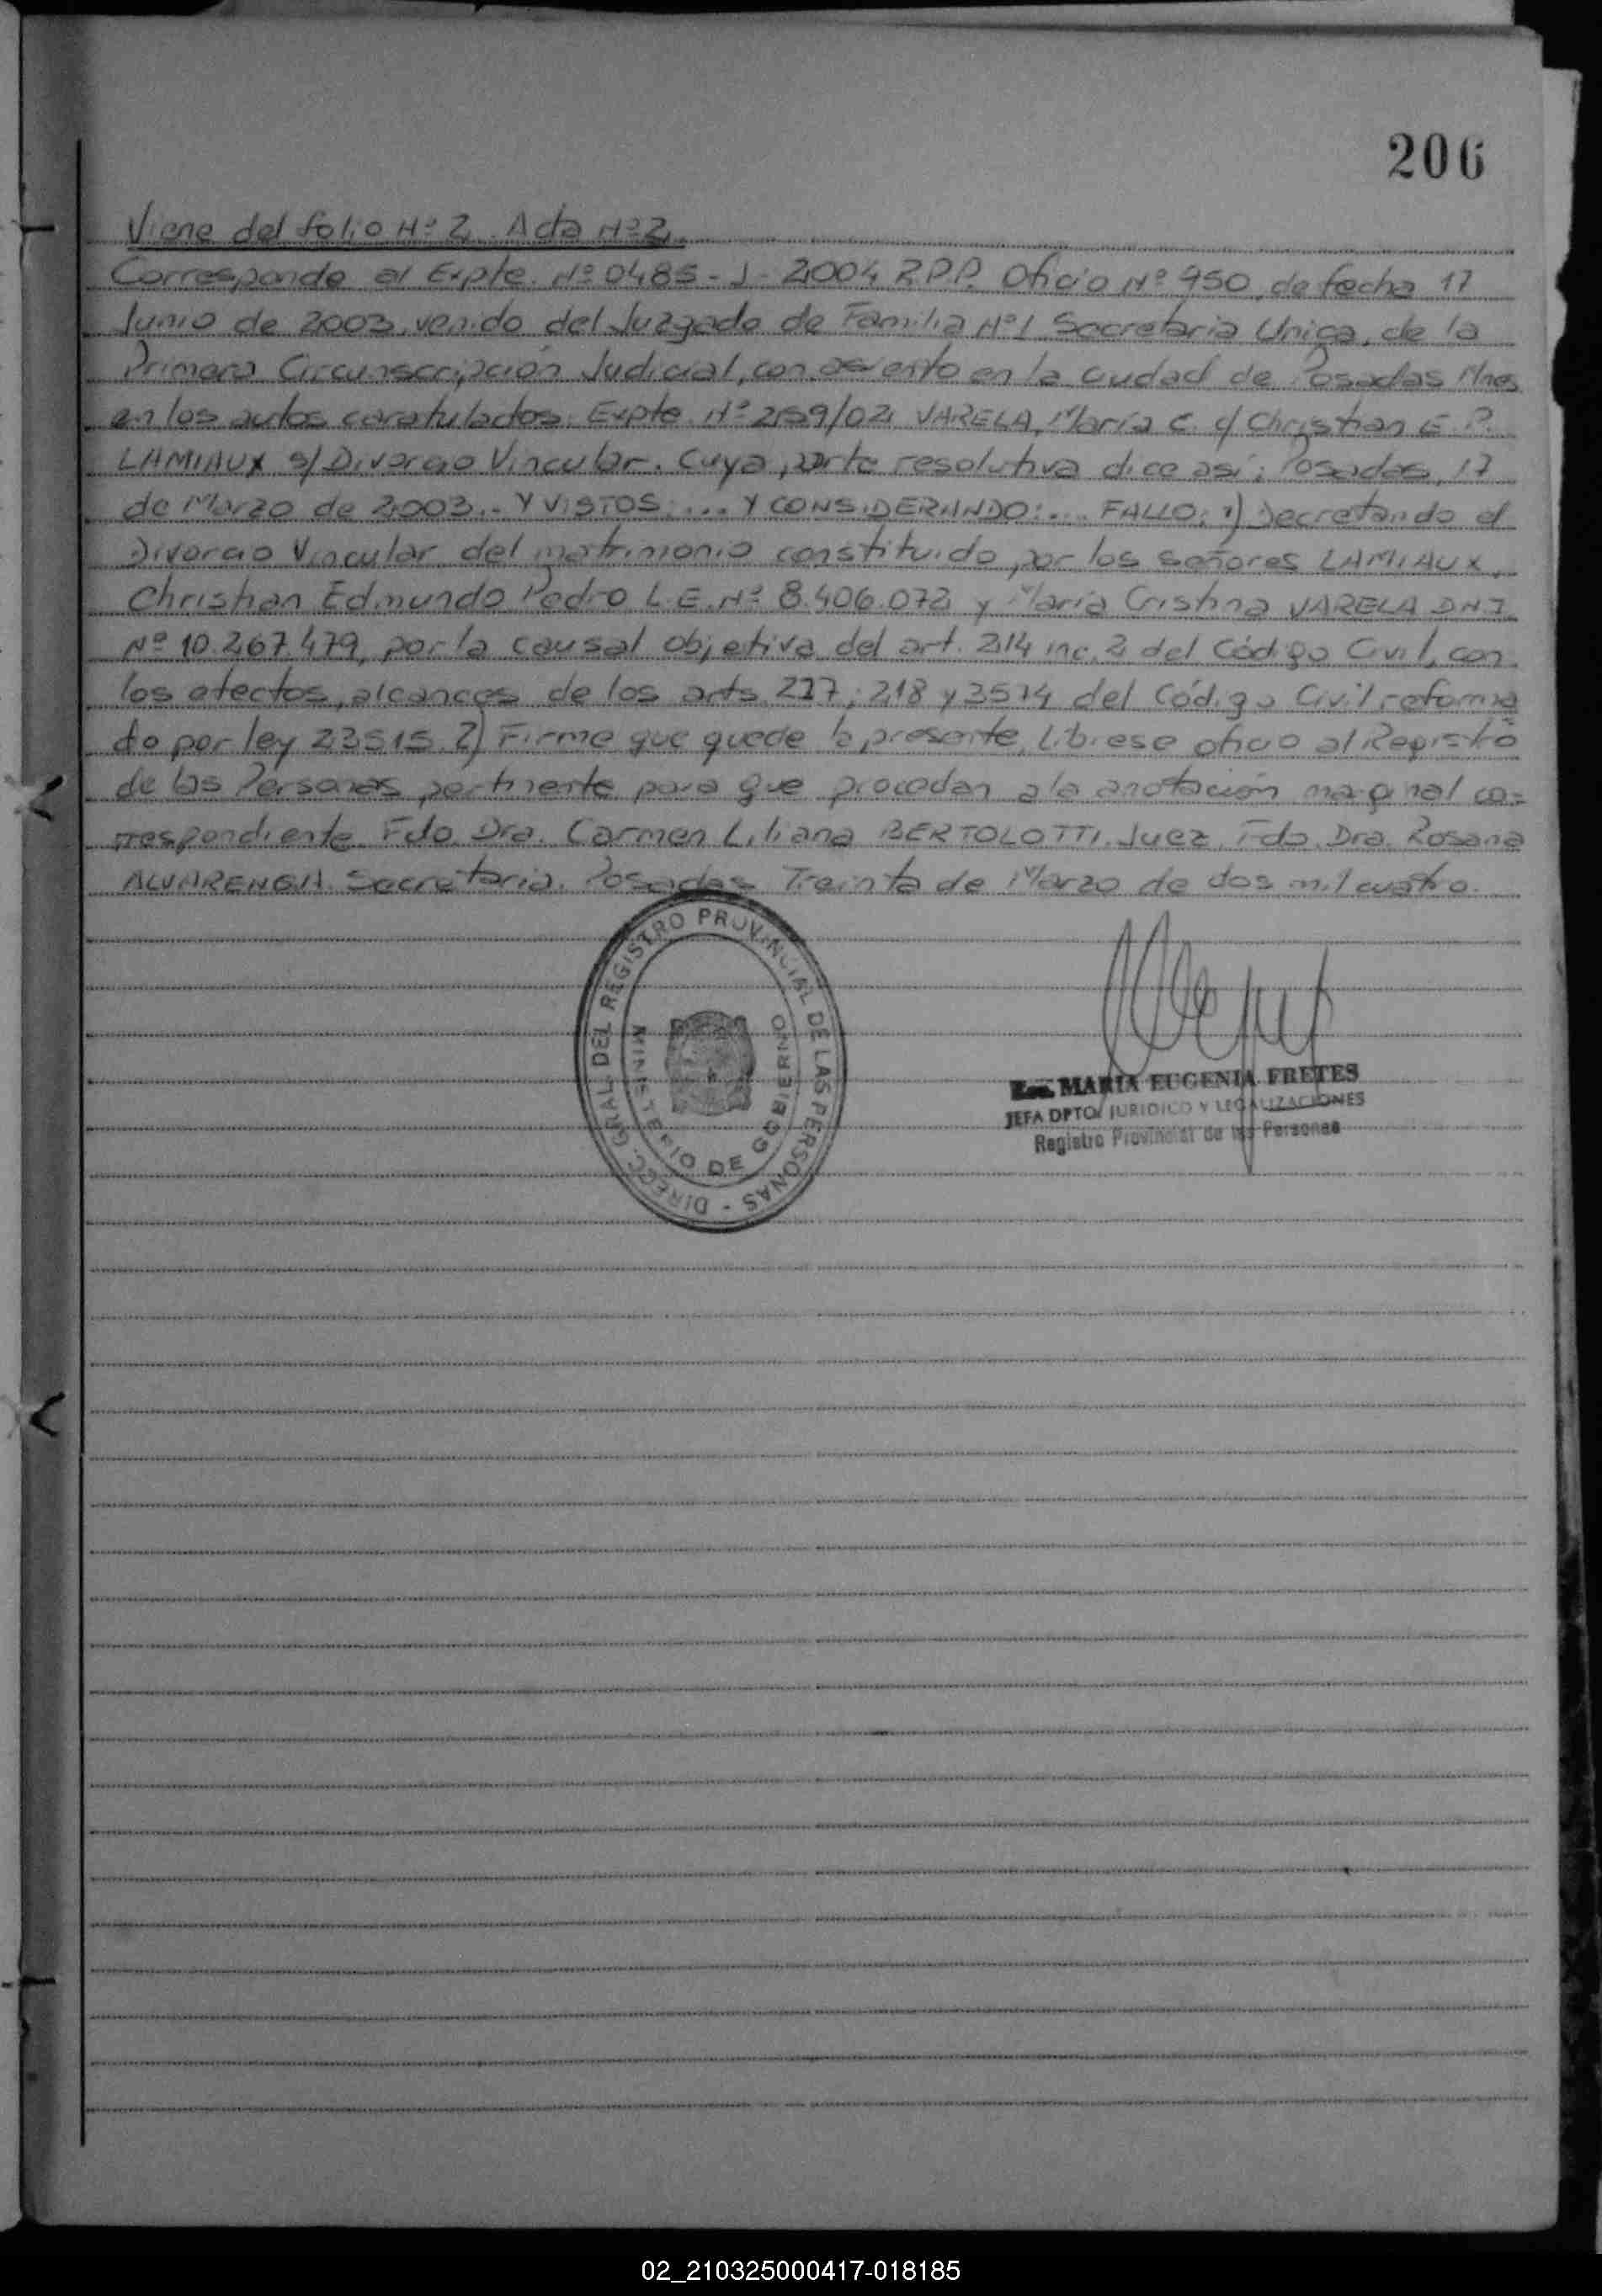 206
Viene del folio Nº 2. Acta Nº 2.
Corresponde al Expte. Nº 0485-J-2004 R.P.P. Oficio Nº 950, de fecha 17
Junio de 2003, venido del Juzgado de Familia Nº 1 Secretaria Unica, de la
Primera Circunscripción Judicial, con asiento en la ciudad de Posadas Mnes
en los autos caratulados: Expte. Nº 2159/02 VARELA, María C. c/ Christian E. P.
LAMIAUX s/ Divorcio Vincular. Cuya parte resolutiva dice así: Posadas, 17
de Marzo de 2003.- Y VISTOS: ... Y CONSIDERANDO: ... FALLO: 1) Decretando el
Divorcio Vincular del matrimonio constituido por los señores LAMIAUX,
Christian Edmundo Pedro L.E. Nº 8.406.072 y María Cristina VARELA D.N.I.
Nº 10.267.479, por la causal objetiva del art. 214 inc. 2 del Código Civil, con
los efectos, alcances de los arts. 217; 218 y 3574 del Código Civil reforma
do por ley 23515. 2) Firme que quede la presente, Líbrese oficio al Registro
de las Personas pertinente para que procedan a la anotación marginal co=
rrespondiente. Fdo. Dra. Carmen Liliana BERTOLOTTI. Juez. Fdo. Dra. Rosana
ALVARENGA. Secretaria. Posadas Treinta de Marzo de dos mil cuatro.
DIRECC. GRAL DEL REGISTRO PROVINCIAL DE LAS PERSONAS -
MINISTERIO DE GOBIERNO
Esc. MARIA EUGENIA FRETES
JEFA DPTO. JURIDICO Y LEGALIZACIONES
Registro Provincial de las Personas
02_210325000417-018185